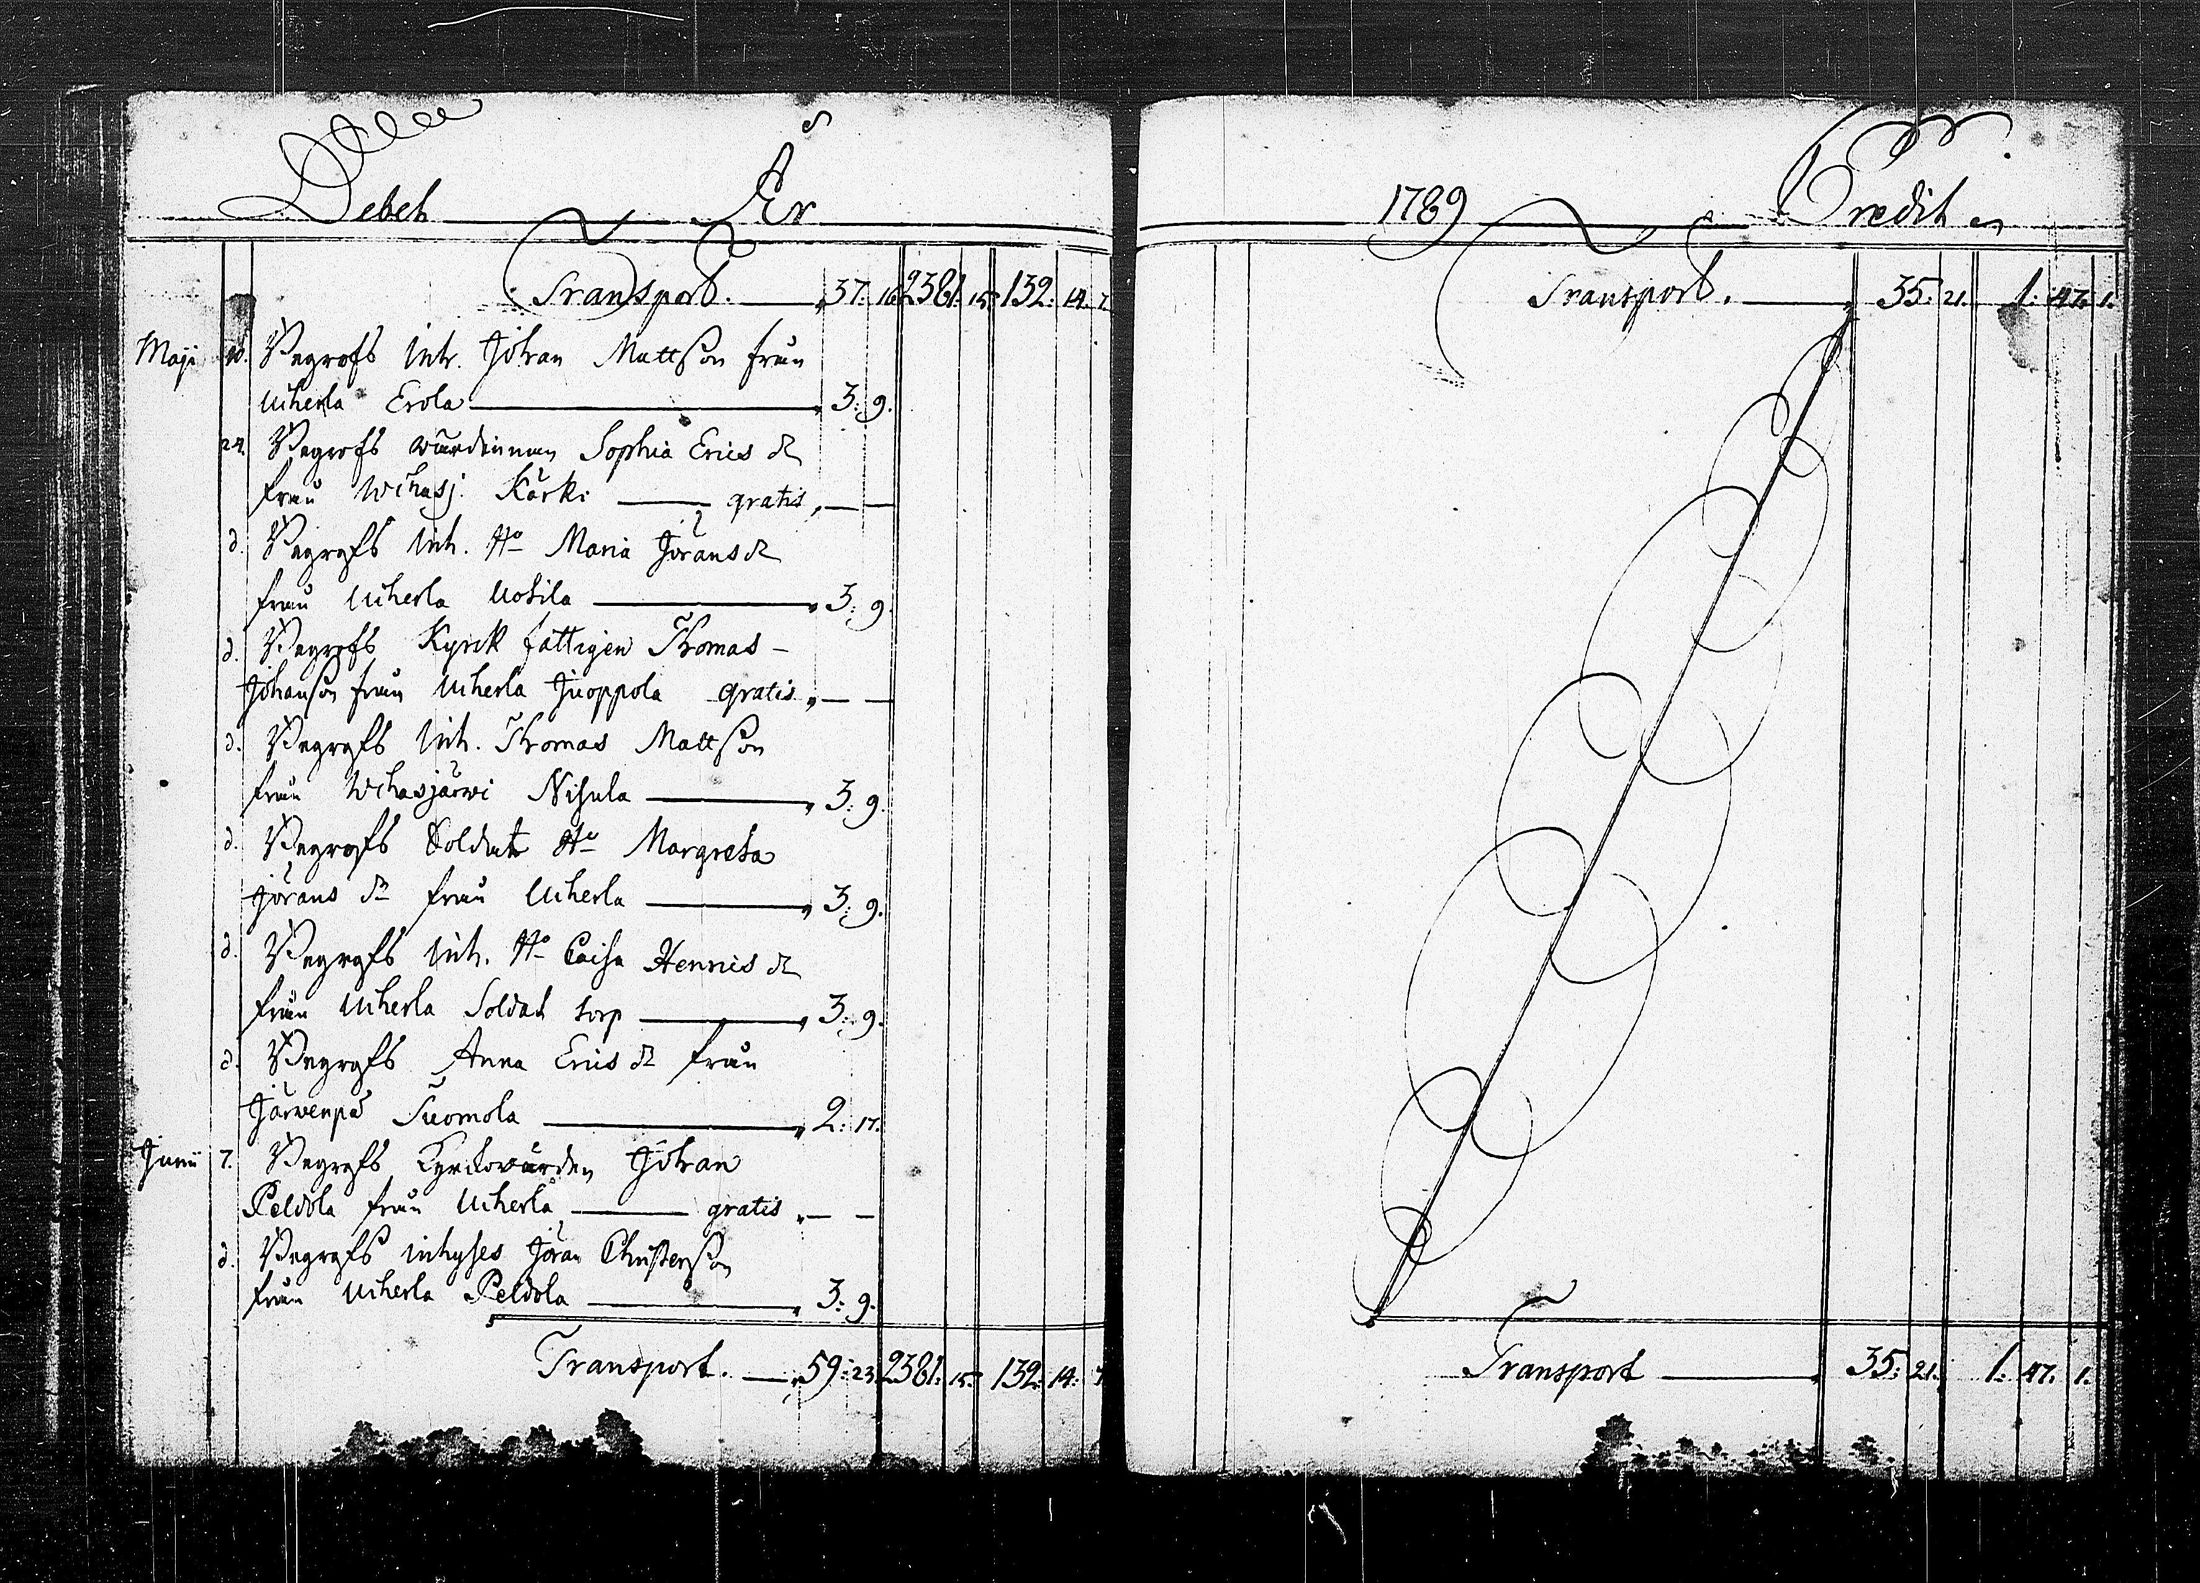 Debet År
Transport. 37. 16 2381. 15. 132. 14. 7.
Maji 10. Begrofs Inh. Johan Mattsson från
Uiherla Erola 3. 9.
24. Begrofs wärdinnan Sophia Erics dr
från Wihasj. Kärki gratis, — —
d. Begrofs Inh. Ho Maria Jörans dr
från Uiherla Uotila 3. 9.
d. Begrofs Kyrck fattigen Thomas –
Johansson från Uiherla Juoppola gratis, — —
d. Begrofs Inh. Thomas Mattsson
från Wihasjärwi Nisula 3. 9.
d. Begrofs Soldats Ho Margreta
Jörans dr från Uiherla 3. 9.
d. Begrofs Inh. Ho Caisa Henrics dr
från Uiherla Soldat torp 3. 9.
d. Begrofs Anna Erics dr från
Järwenpä Tuomola 2. 17.
Junii 7. Begrofs Kyrckowärden Johan
Peldola från Uiherla gratis, — —
d. Begrofs inhyses Jöran Christersson
från Uiherla Peldola 3. 9.
Transport. 59. 23. 2381. 15. 132. 14. 7
1789 Credit
Transport. 35. 21. 1. 47. 1.
Transport 35. 21. 1. 47. 1.